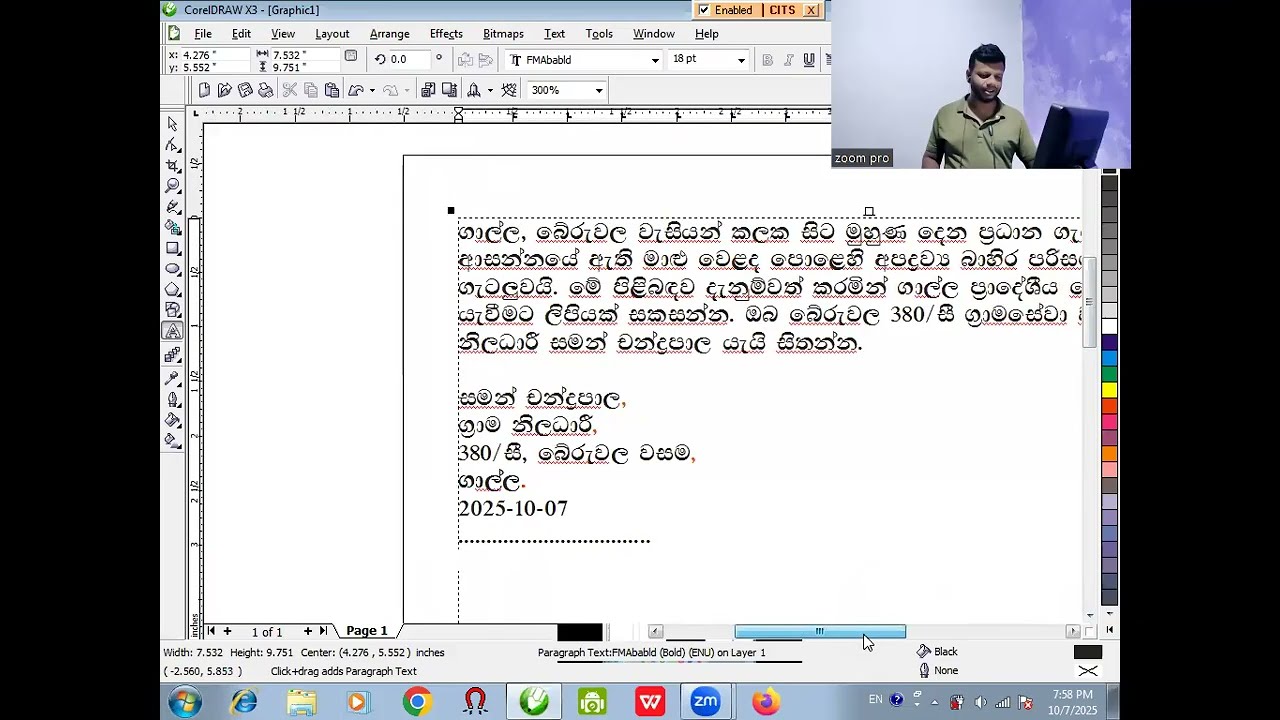 CorelDRAW X3 - [Graphic1]
Enabled | CITS X
File Edit View Layout Arrange Effects Bitmaps Text Tools Window Help
x: 4.276 "
y: 5.552 "
7.532 "
9.751 "
0.0 °
FMAbabld
18 pt
B I U
300%
zoom pro
ගාල්ල, බේරුවල වැසියන් කලක සිට මුහුණ දෙන ප්‍රධාන
ආසන්නයේ ඇති මාළු වෙළඳ පොළෙහි අපද්‍රව්‍ය බාහිර
ගැටලුවයි. මේ පිළිබඳව දැනුම්වත් කරමින් ගාල්ල ප්‍රාදේශීය
යැවීමට ලිපියක් සකසන්න. ඔබ බේරුවල 380/සී ග්‍රාමසේවා
නිලධාරී සමන් චන්ද්‍රපාල යැයි සිතන්න.
සමන් චන්ද්‍රපාල,
ග්‍රාම නිලධාරී,
380/සී, බේරුවල වසම,
ගාල්ල.
2025-10-07
..................................
inches
1 of 1
Page 1
Width: 7.532 Height: 9.751 Center: (4.276 , 5.552 ) inches
Paragraph Text:FMAbabld (Bold) (ENU) on Layer 1
Black
( -2.560, 5.853 )
Click+drag adds Paragraph Text
None
zm
EN
7:58 PM
10/7/2025